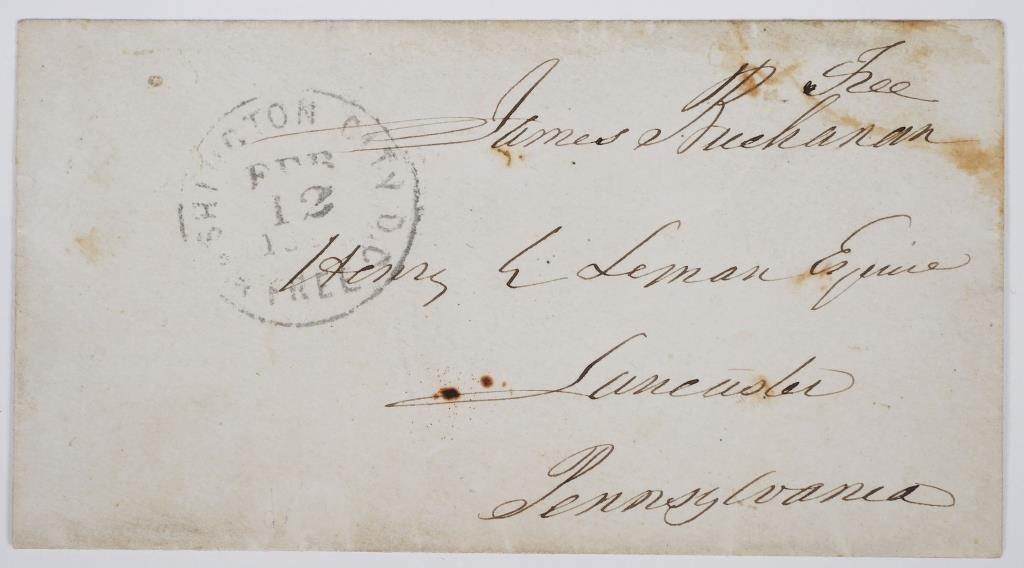 Free
James Buchanan
WASHINGTON CITY D.C.
FEB
12
FREE
Henry E Leman Esquire
Lancaster
Pennsylvania